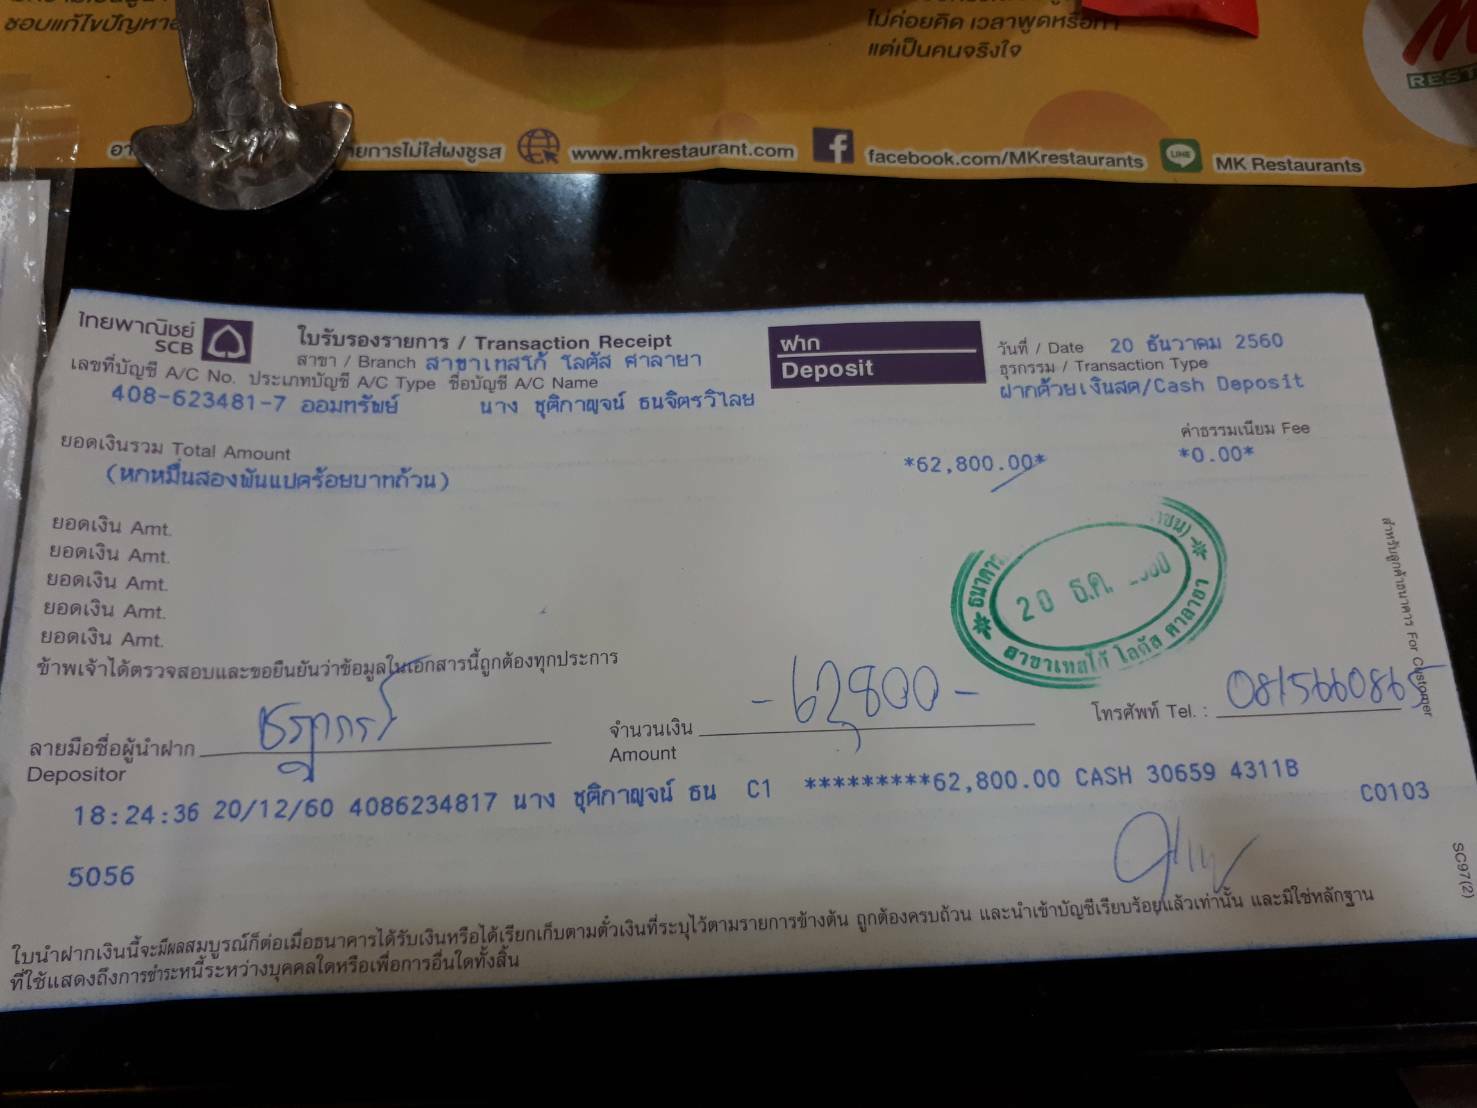 ชอบแก้ไขปัญหา
ไม่ค่อยคิด เวลาพูดหรือทำ
แต่เป็นคนจริงใจ
REST
ยการไม่ใส่ผงชูรส www.mkrestaurant.com facebook.com/MKrestaurants LINE MK Restaurants
ไทยพาณิชย์
SCB
ใบรับรองรายการ / Transaction Receipt
สาขา / Branch สาขาเทสโก้ โลตัส ศาลายา
ฝาก
Deposit
วันที่ / Date 20 ธันวาคม 2560
ธุรกรรม / Transaction Type
ฝากด้วยเงินสด/Cash Deposit
เลขที่บัญชี A/C No. ประเภทบัญชี A/C Type ชื่อบัญชี A/C Name
408-623481-7 ออมทรัพย์ นาง ชุติกาญจน์ ธนจิตรวิไลย
ยอดเงินรวม Total Amount
ค่าธรรมเนียม Fee
(หกหมื่นสองพันแปดร้อยบาทถ้วน) *62,800.00* *0.00*
ยอดเงิน Amt.
ยอดเงิน Amt.
ยอดเงิน Amt.
ยอดเงิน Amt.
ยอดเงิน Amt.
ธนาคาร
20 ธ.ค.
สาขาเทสโก้ โลตัส ศาลายา
สำหรับลูกค้าธนาคาร For Customer
ข้าพเจ้าได้ตรวจสอบและขอยืนยันว่าข้อมูลในเอกสารนี้ถูกต้องทุกประการ
ลายมือชื่อผู้นำฝาก
Depositor
จำนวนเงิน - 62,800 -
Amount
โทรศัพท์ Tel. : 0815660865
18:24:36 20/12/60 4086234817 นาง ชุติกาญจน์ ธน C1 *********62,800.00 CASH 30659 4311B
C0103
5056
SC97(2)
ใบนำฝากเงินนี้จะมีผลสมบูรณ์ก็ต่อเมื่อธนาคารได้รับเงินหรือได้เรียกเก็บตามตั๋วเงินที่ระบุไว้ตามรายการข้างต้น ถูกต้องครบถ้วน และนำเข้าบัญชีเรียบร้อยแล้วเท่านั้น และมิใช่หลักฐาน
ที่ใช้แสดงถึงการชำระหนี้ระหว่างบุคคลใดหรือเพื่อการอื่นใดทั้งสิ้น